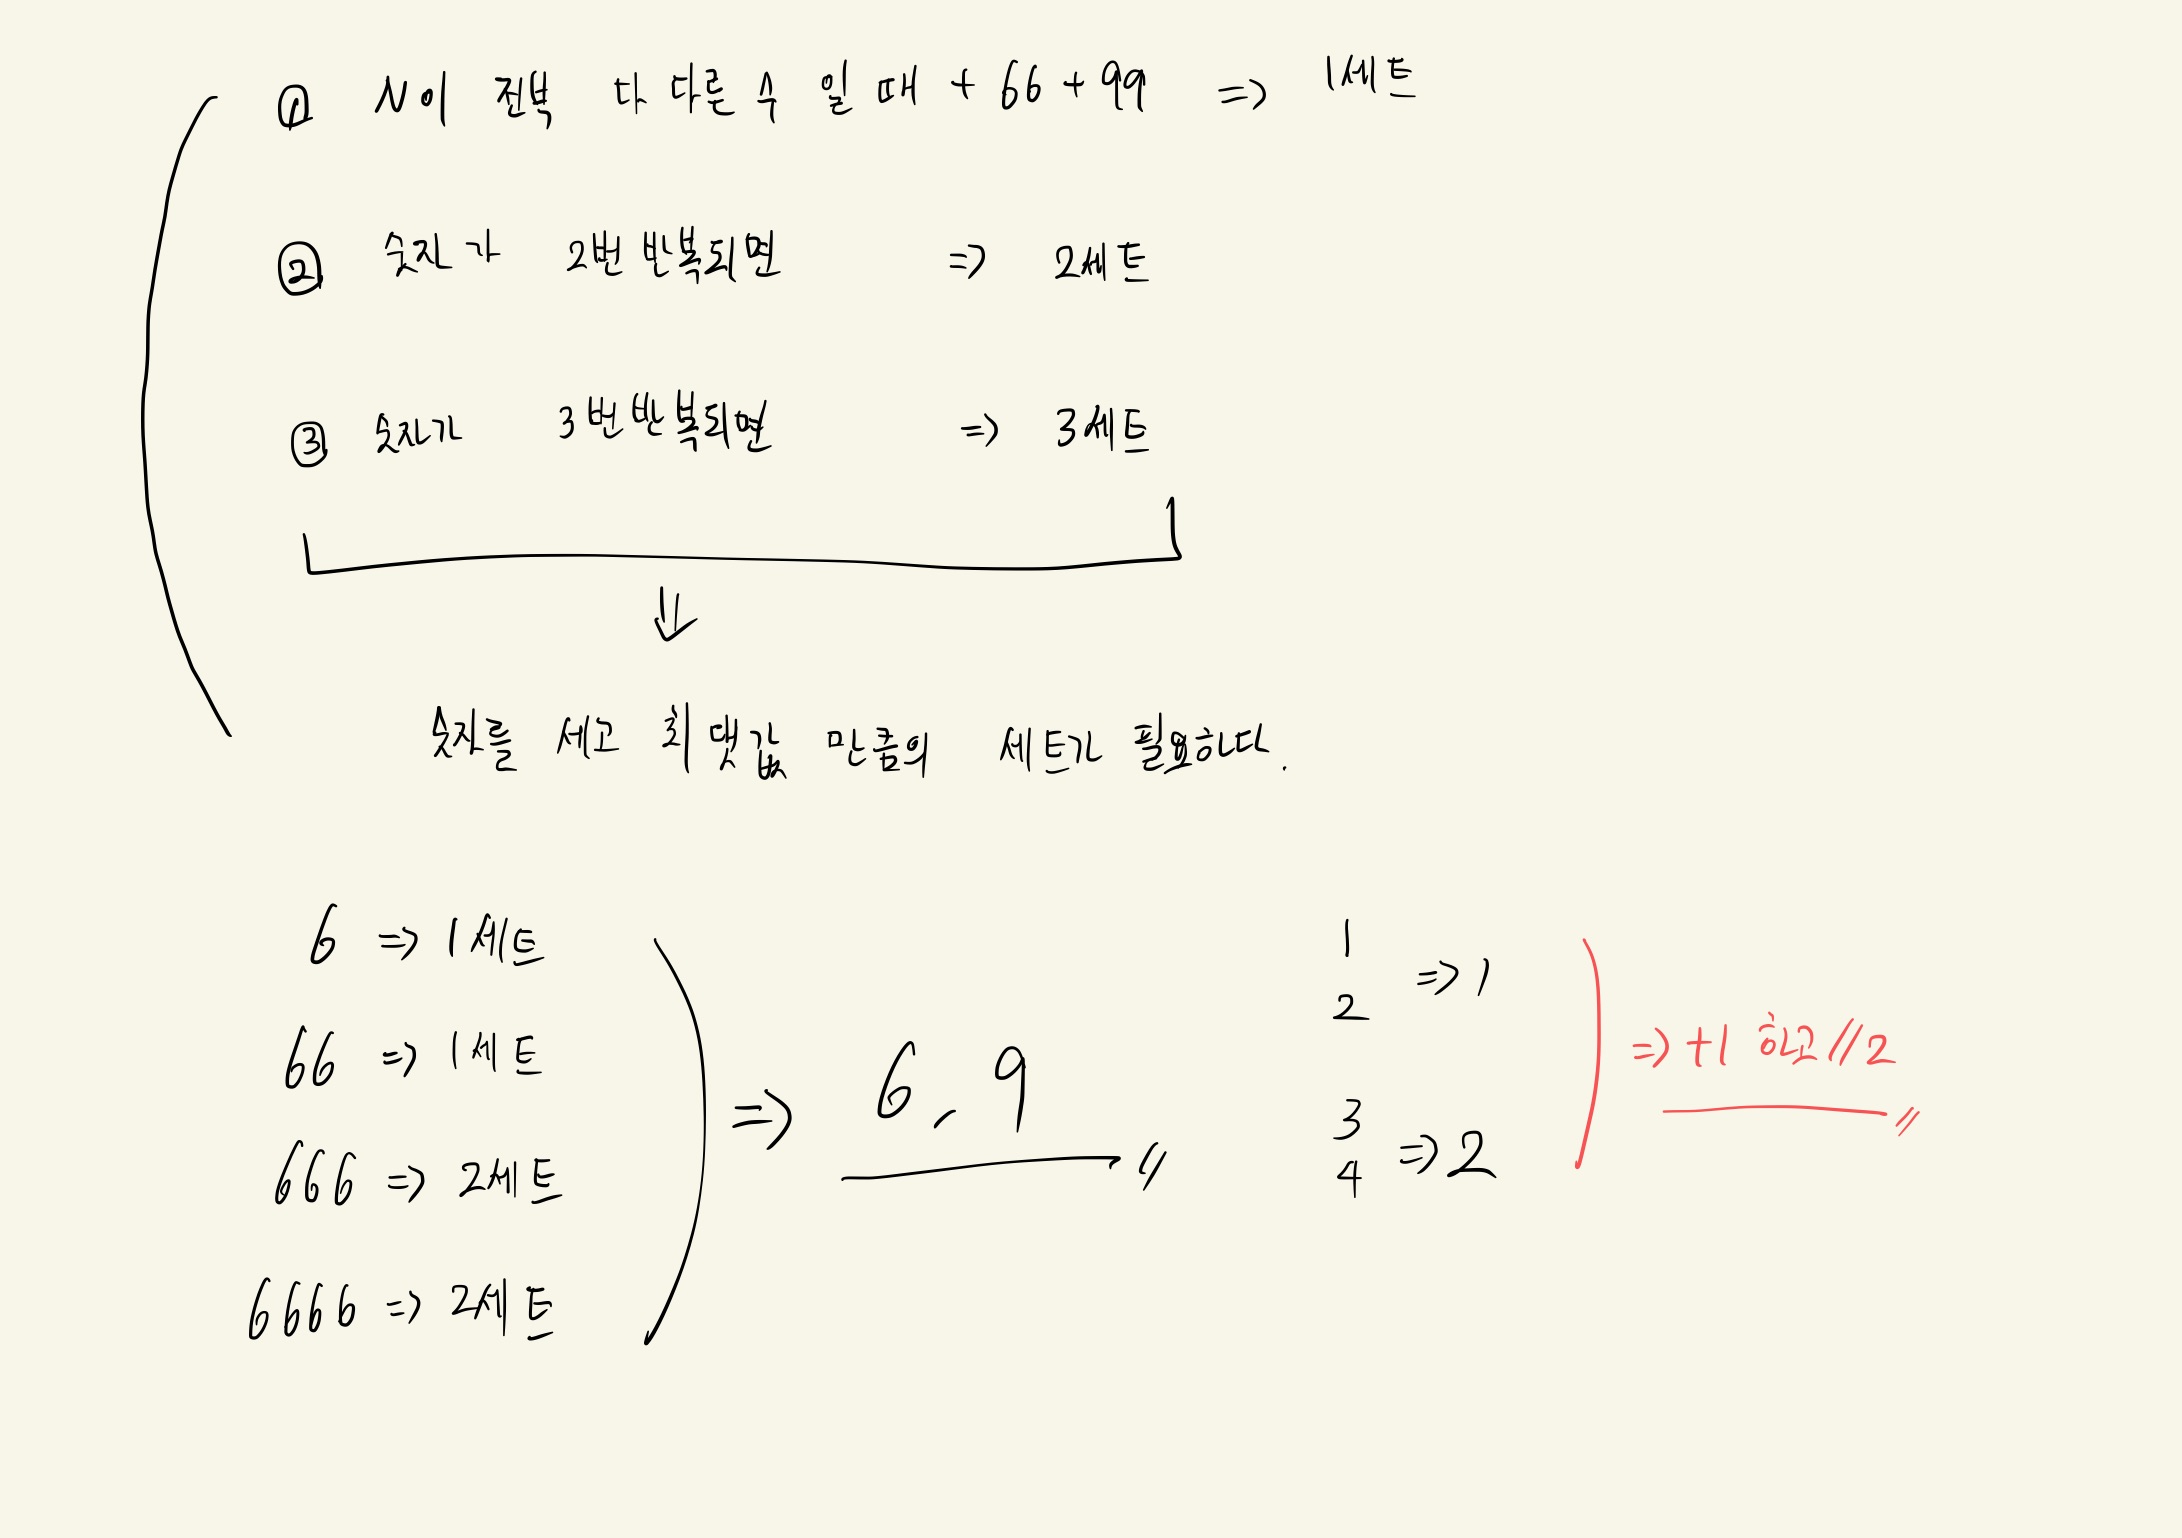 ① N이 전북 다 다른 수 일 때 + 66 + 99 => 1세트
② 숫자가 2번 반복되면 => 2세트
③ 숫자가 3번 반복되면 => 3세트
숫자를 세고 최댓값 만큼의 세트가 필요하다.
6 => 1세트
66 => 1세트
666 => 2세트
6666 => 2세트
=> 6, 9
1
2 => 1
3
4 => 2
=> +1 하고 //2